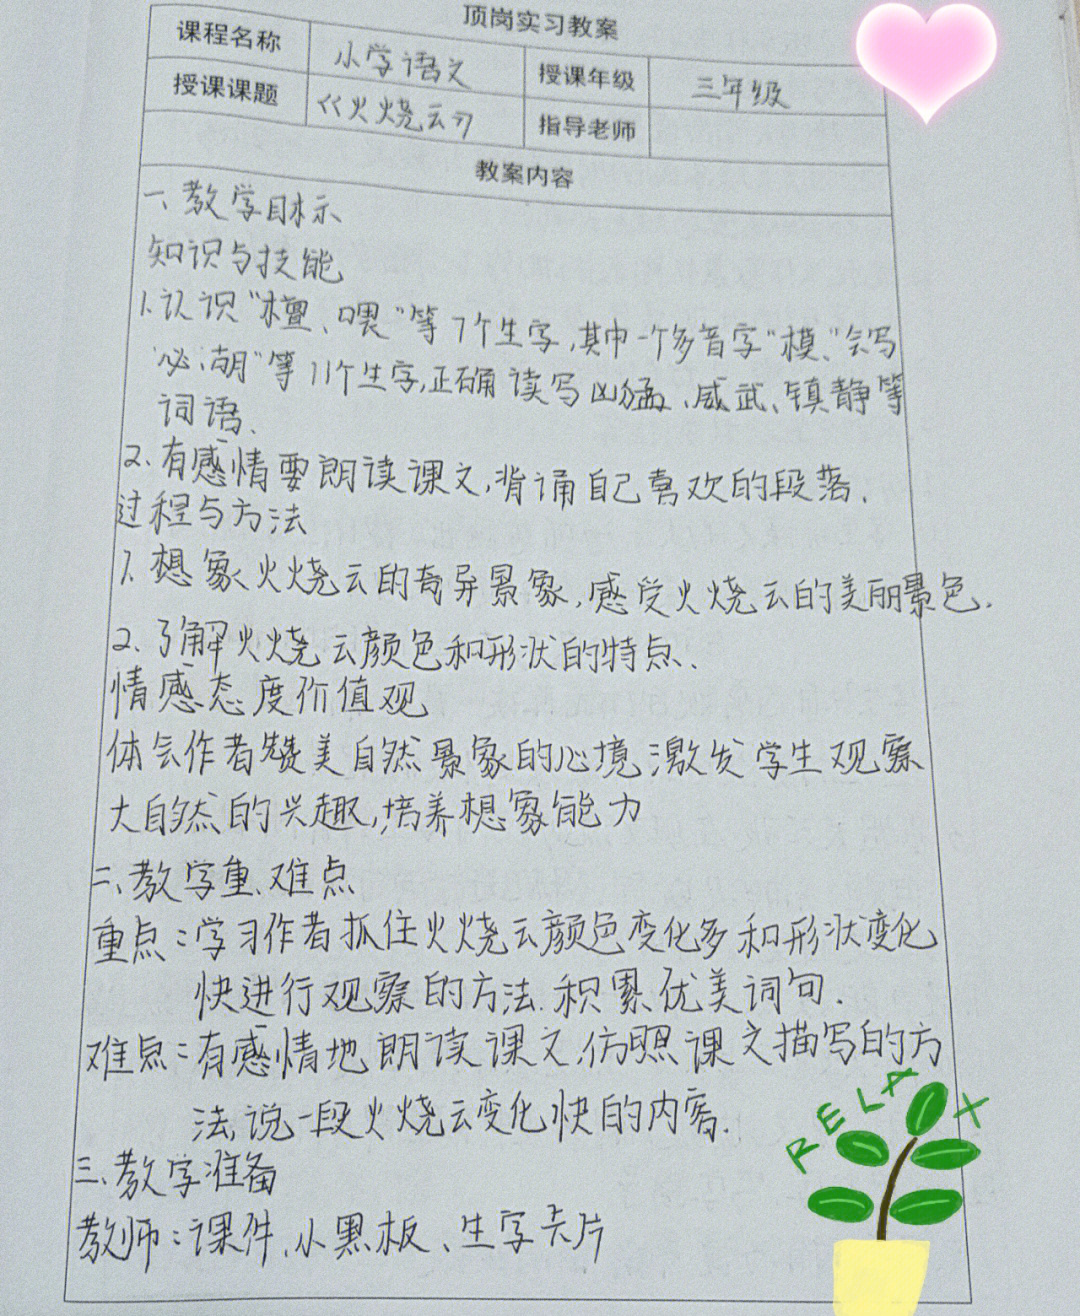 顶岗实习教案
课程名称 小学语文 授课年级 三年级
授课课题 《火烧云》 指导老师
教案内容
一、教学目标
知识与技能
1.认识“檀、喂”等7个生字,其中一个多音字“模、”会写
“必、胡”等11个生字,正确读写凶猛、威武、镇静等
词语、
2.有感情要朗读课文,背诵自己喜欢的段落.
过程与方法
1.想象火烧云的奇异景象,感受火烧云的美丽景色.
2.了解火烧云颜色和形状的特点、
情感态度价值观
体会作者赞美自然景象的心境,激发学生观察
大自然的兴趣,培养想象能力
二、教学重、难点
重点:学习作者抓住火烧云颜色变化多和形状变化
快进行观察的方法.积累优美词句.
难点:有感情地朗读课文,仿照课文描写的方
法,说一段火烧云变化快的内容.
三、教学准备
教师:课件、小黑板、生字卡片
RELAX